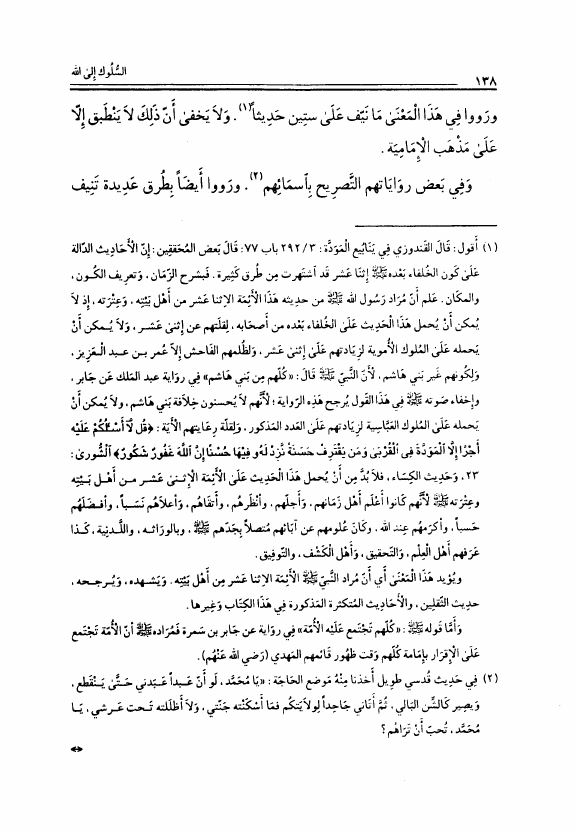 السُّلُوك إلىٰ الله
١٣٨
ورووا فِي هَذَا الْمَعْنَىٰ مَا نَيّف عَلَىٰ ستين حَدِيثاً(١). وَلاَ يَخفىٰ أنّ ذَلِكَ لاَ يَنْطَبق إلّا
عَلَىٰ مَذْهَب الْإمَامِيَة.
وَفِي بَعض روَايَاتهم التَّصرِيح بِأسمَائِهم(٢). ورووا أيضَاً بِطُرق عَدِيدة تَنِيف
(١) أقول: قَالَ القَندوزي فِي يَنَابِيع الْمَودّة: ٢٩٢/٣ باب ٧٧: قَالَ بَعض المُحَققِين: إنّ الأحَادِيث الدّالة
عَلَىٰ كَون الخُلفَاء بَعْده ﷺ إثنَا عَشر قَد اَشتَهرت مِن طُرق كَثِيرة. فَبشرح الزَّمَان، وتَعرِيف الكَون،
والمكَان. عَلم أنّ مُرَاد رَسُول الله ﷺ من حَدِيثه هَذَا الأئِمة الاِثنا عَشر من أهْل بَيْتِه، وعِتْرَته، إذ لاَ
يُمكن أنْ يُحمل هَذَا الْحَدِيث عَلَىٰ الخُلفَاء بَعْده من أصحَابه، لِقلّتهم عَن إثنىٰ عَشَر، وَلاَ يُمكن أنْ
يَحمله عَلَىٰ المُلوك الأُموية لزِيَادتهم عَلَىٰ إثنىٰ عَشر، ولظُلمهم الفَاحش إلاّ عُمر بن عَبد الْعَزِيز،
ولكَونهم غَير بَني هَاشم، لأنّ النَّبيّ ﷺ قَالَ: «كُلّهم مِن بَني هَاشم» فِي روَاية عبد الملك عَن جَابر،
وإخفَاء صَوته ﷺ فِي هَذَا القَول يُرجح هَذِه الرّوَاية؛ لأنَّهم لاَ يُحسنون خِلاَفة بَني هَاشم، ولاَ يُمكن أنْ
يَحمله عَلَىٰ المُلوك العَبَّاسية لزيَادتهم عَلَىٰ العَدد المَذكور، ولقلّة رعَايتهم الْآيَة: ﴿قُل لَّآ أَسْـَٔلُكُمْ عَلَيْهِ
أَجْرًا إِلَّا الْمَوَدَّةَ فِى الْقُرْبَىٰ وَمَن يَقْتَرِفْ حَسَنَةً نَّزِدْ لَهُو فِيهَا حُسْنًا إِنَّ اللَّهَ غَفُورٌ شَكُورٌ﴾ اَلشُّورىٰ:
٢٣، وحَدِيث الكِسَاء، فلاَ بُدَّ مِن أنْ يُحمل هَذَا الْحَدِيث عَلَىٰ الأئِمة الإثنىٰ عَشر من أهْل بَيْتِه
وعِتْرَته ﷺ لأنَّهم كَانوا أعْلَم أهْل زَمَانهم، وأجلّهم، وأنْظَرهُم، وأتقَاهُم، وأعلاَهُم نَسبَاً، وأفضَلهُم
حَسباً، وأكرَمهُم عِند الله، وكَانَ عُلومهم عن آبَائهم مُتصلاً بِجَدّهم ﷺ، وبالورَاثه، واللّدنِية، كَذا
عَرَفهم أهْل الْعِلم، وَالتَّحقِيق، وأهْل الْكَشْف، والتَّوفِيق.
ويُؤيد هَذَا الْمَعْنَىٰ أي أنّ مُراد النَّبيّ ﷺ الأئِمة الاِثنا عَشر مِن أهْل بَيْتِه. وَيَشهده، ويُرجحه،
حدِيث الثّقلِين، والأحَادِيث المُتكثرة المَذكورة فِي هَذَا الكتَاب وغَيرها.
وَأمَّا قَوله ﷺ: «كُلّهم تَجتَمع عَلَيْه الأُمّة» في روَاية عَن جَابر بن سَمرة فَمُرَاده ﷺ أنّ الأُمّة تَجتَمع
عَلَىٰ الْإقرَار بِإمَامة كُلّهم وَقت ظهُور قَائمهم المَهدي (رَضي الله عَنْهُم).
(٢) فِي حَدِيث قُدسي طَوِيل أخذنَا مِنْهُ مَوضع الحَاجة: «يَا مُحَمّد، لَو أنّ عَبداً عَبَدني حَتَّىٰ يَنْقَطع،
وَيصير كَالشَّن البَالي، ثُمَّ أتَاني جَاحِداً لِولاَيَتكُم فمَا أسْكَنته جَنّتي، وَلاَ أظلَلته تَحت عَرشي، يَا
مُحَمّد، تُحبّ أنْ تَرَاهُم؟